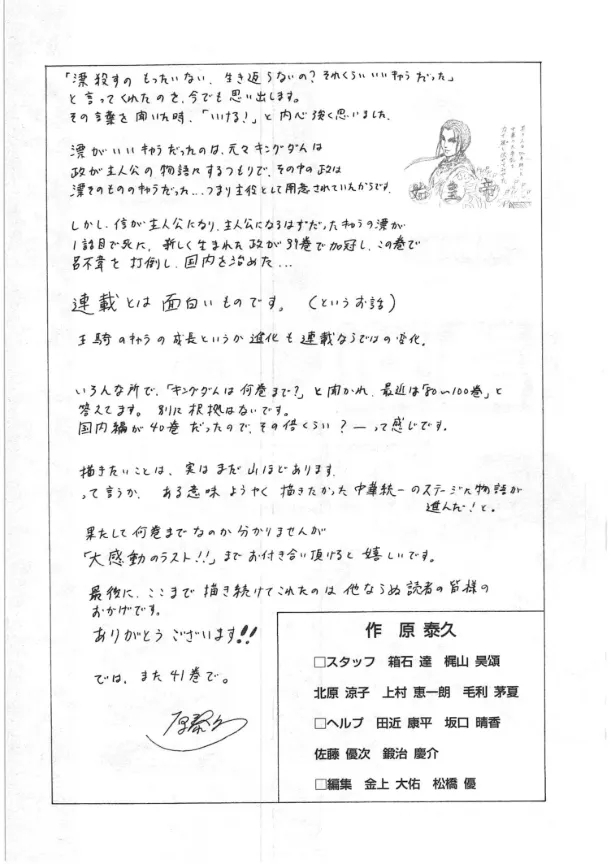 「漂殺すの もったいない、生き返らないの？それくらいいいキャラだった」
と言ってくれたのを、今でも思い出します。
その言葉を聞いた時、「いける！」と内心強く思いました。
漂がいいキャラだったのは、元々キングダムは
政が主人公の物語にするつもりで、その中の政は
漂そのもののキャラだった…つまり主役として用意されていたからです。
しかし、信が主人公になり、主人公になるはずだったキャラの漂が
1話目で死に、新しく生まれた政が39巻で加冠し、この巻で
呂不韋を打倒し、国内を治めた…
連載とは面白いものです。（というお話）
王騎のキャラの成長というか進化も連載ならではの変化。
いろんな所で、「キングダムは何巻まで？」と聞かれ、最近は「80〜100巻」と
答えてます。別に根拠はないです。
国内編が40巻だったので、その倍くらい？ーって感じです。
描きたいことは、実はまだ山ほどあります。
って言うか、ある意味ようやく描きたかった中華統一のステージに物語が
進んだ！と。
果たして何巻までなのか分かりませんが
「大感動のラスト!!」までお付き合い頂けると嬉しいです。
最後に、ここまで描き続けてこれたのは他ならぬ読者の皆様の
おかげです。
ありがとうございます!!
では、また41巻で。
始皇帝
作 原 泰久
□スタッフ 箱石 達 梶山 昊頌
北原 涼子 上村 恵一朗 毛利 茅夏
□ヘルプ 田近 康平 坂口 晴香
佐藤 優次 鍛治 慶介
□編集 金上 大佑 松橋 優